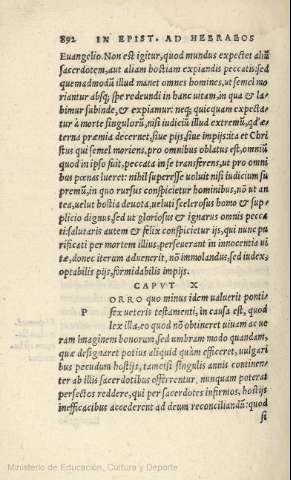 892 IN EPIST. AD HEBRAEOS
Euangelio. Non est igitur, quod mundus expectet aliũ
sacerdotem, aut aliam hostiam expiandis peccatis: sed
quemadmodũ illud manet omnes homines, ut semel mo
riantur absq; spe redeundi in hanc uitam, in qua & la-
bimur subinde, & expiamur: neq; quicquam expecta-
tur à morte singulorũ, nisi iudiciũ illud extremũ, qđ æ-
terna præmia decernet, siue pijs, siue impijs: ita et Chri
stus qui semel moriens, pro omnibus oblatus est, omniũ
quod in ipso fuit, peccata in se transferens, ut pro omni
bus pœnas lueret: nihil superesse uoluit nisi iudicium su
premũ, in quo rursus conspicietur hominibus, nõ ut an
tea, uelut hostia deuota, uelut scelerosus homo & sup-
plicio dignus, sed ut gloriosus & ignarus omnis pecca
ti: salutaris autem & felix conspicietur ijs, qui nunc pu
rificati per mortem illius, perseuerant in innocentia ui
tæ, donec iterum aduenerit, nõ immolandus, sed iudex,
optabilis pijs, formidabilis impijs.
CAPVT X
PORRO quo minus idem ualuerit ponti-
fex ueteris testamenti, in causa est, quod
lex illa, eo quod nõ obtineret uiuam ac ue
ram imaginem bonorum, sed umbram modo quandam,
quæ designaret potius aliquid quàm efficeret, uulgari
bus pecudum hostijs, tametsi singulis annis continen-
ter ab illis sacerdotibus offerrentur, nunquam poterat
perfectos reddere, qui per sacerdotes infirmos, hostijs
inefficacibus accederent ad deum reconciliandũ: quod
si
Ministerio de Educación, Cultura y Deporte